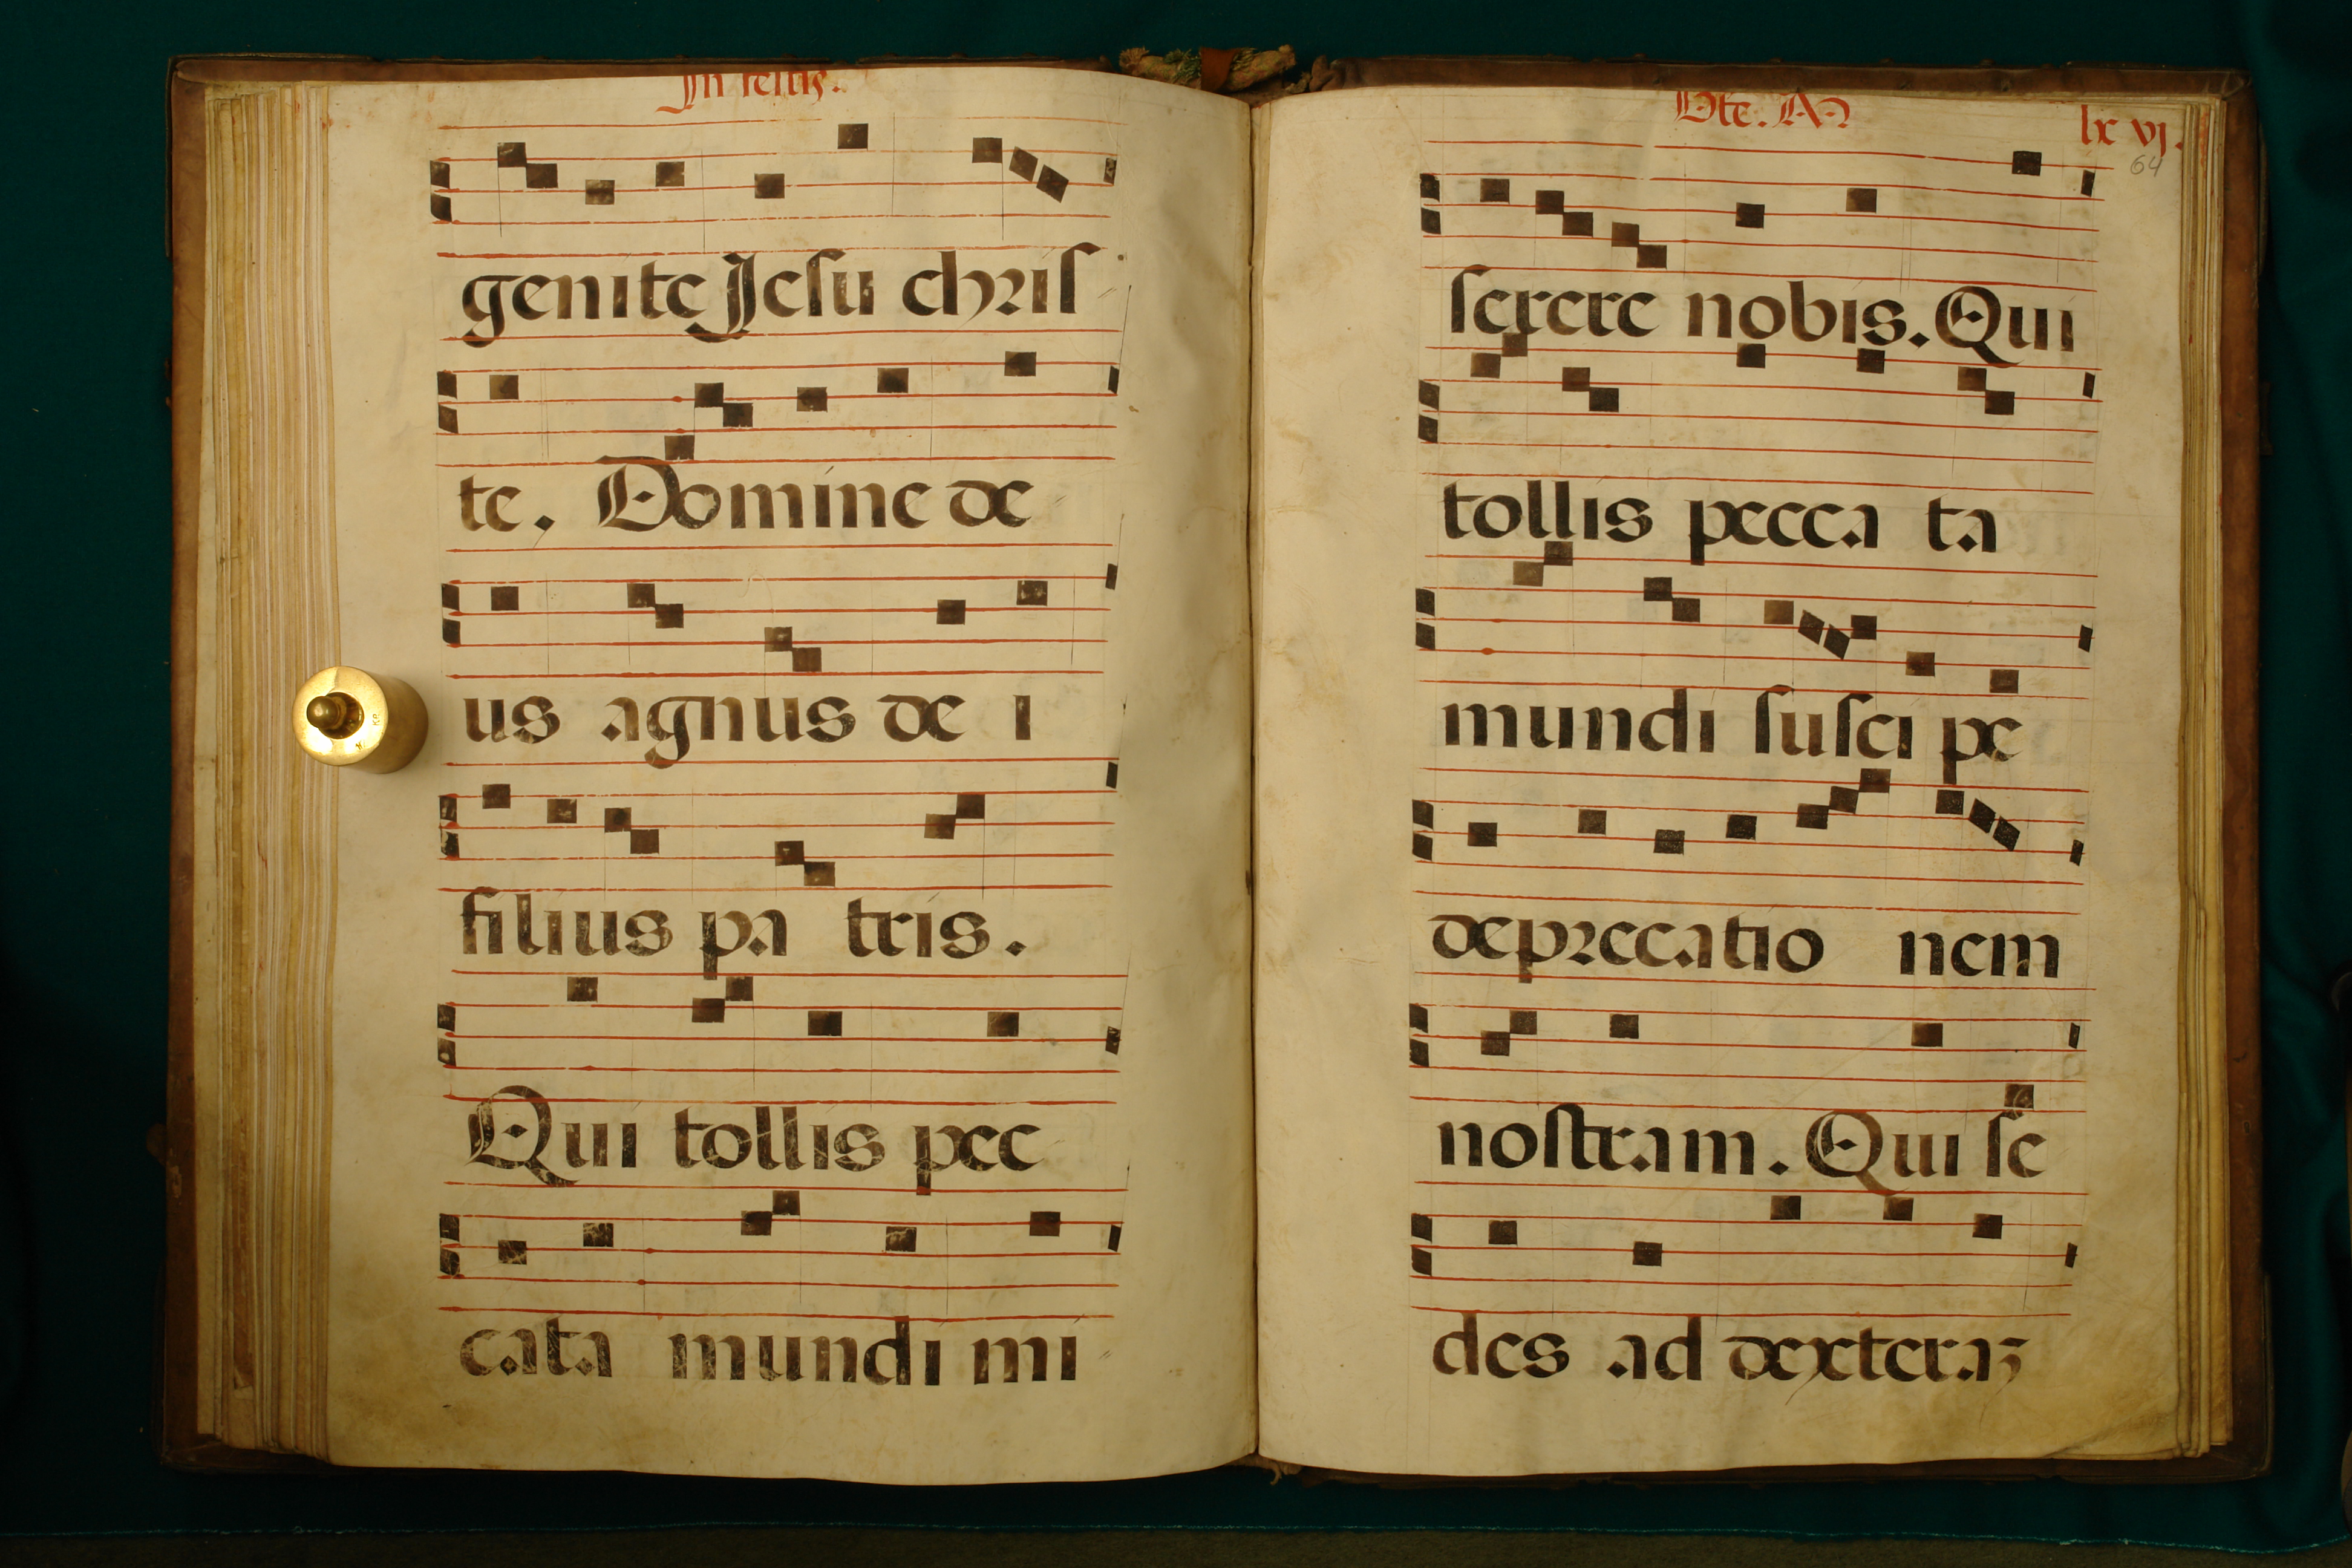 In festis.
genite Jesu chris
te. Domine de
us agnus de i
filius pa tris.
Qui tollis pec
cata mundi mi
Bte. M
lx vj.
64
serere nobis. Qui
tollis pecca ta
mundi susci pe
deprecatio nem
nostram. Qui se
des ad dexteraz